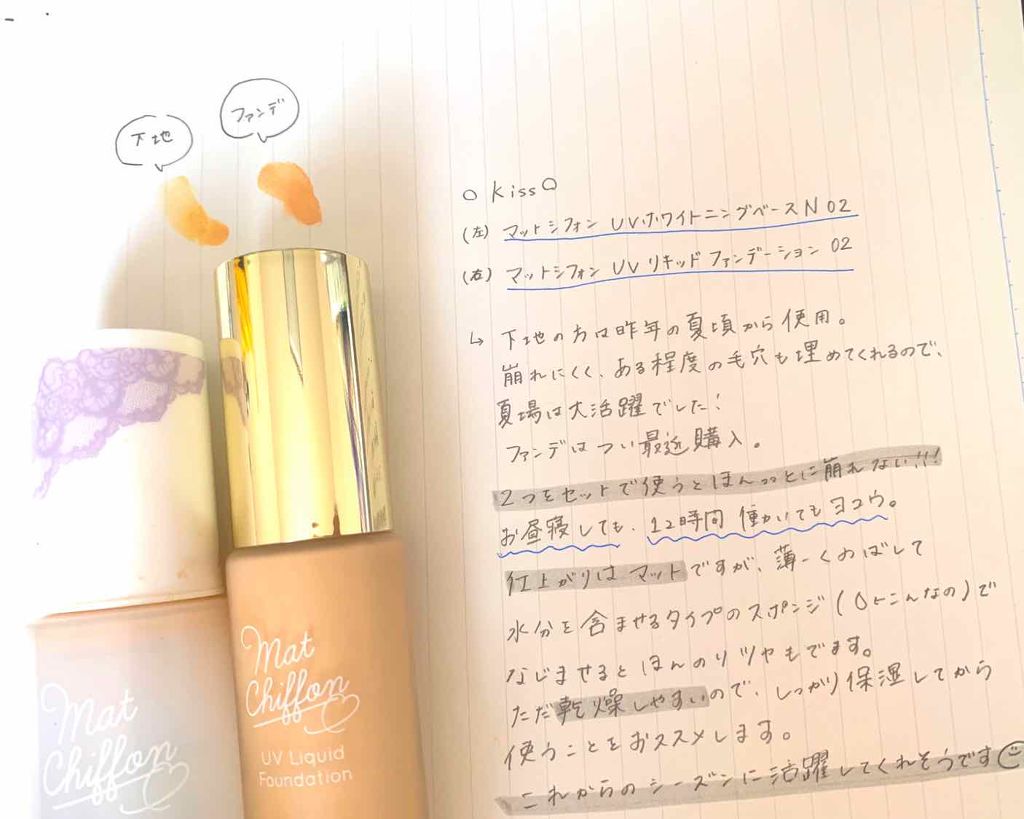 下地
ファンデ
○ Kiss ○
(左) マットシフォン UVホワイトニングベースN 02
(右) マットシフォン UVリキッドファンデーション 02
↳ 下地の方は昨年の夏頃から使用。
崩れにくく、ある程度の毛穴も埋めてくれるので、
夏場は大活躍でした!
ファンデはつい最近購入。
2つをセットで使うとほんっっとに崩れない!!!
お昼寝しても、12時間働いてもヨユウ。
仕上がりはマットですが、薄ーくのばして
水分を含ませるタイプのスポンジ(こんなの)で
なじませるとほんのりツヤもでます。
ただ乾燥しやすいので、しっかり保湿してから
使うことをおススメします。
これからのシーズンに活躍してくれそうです
Mat
Chiffon
Mat
Chiffon
UV Liquid
Foundation